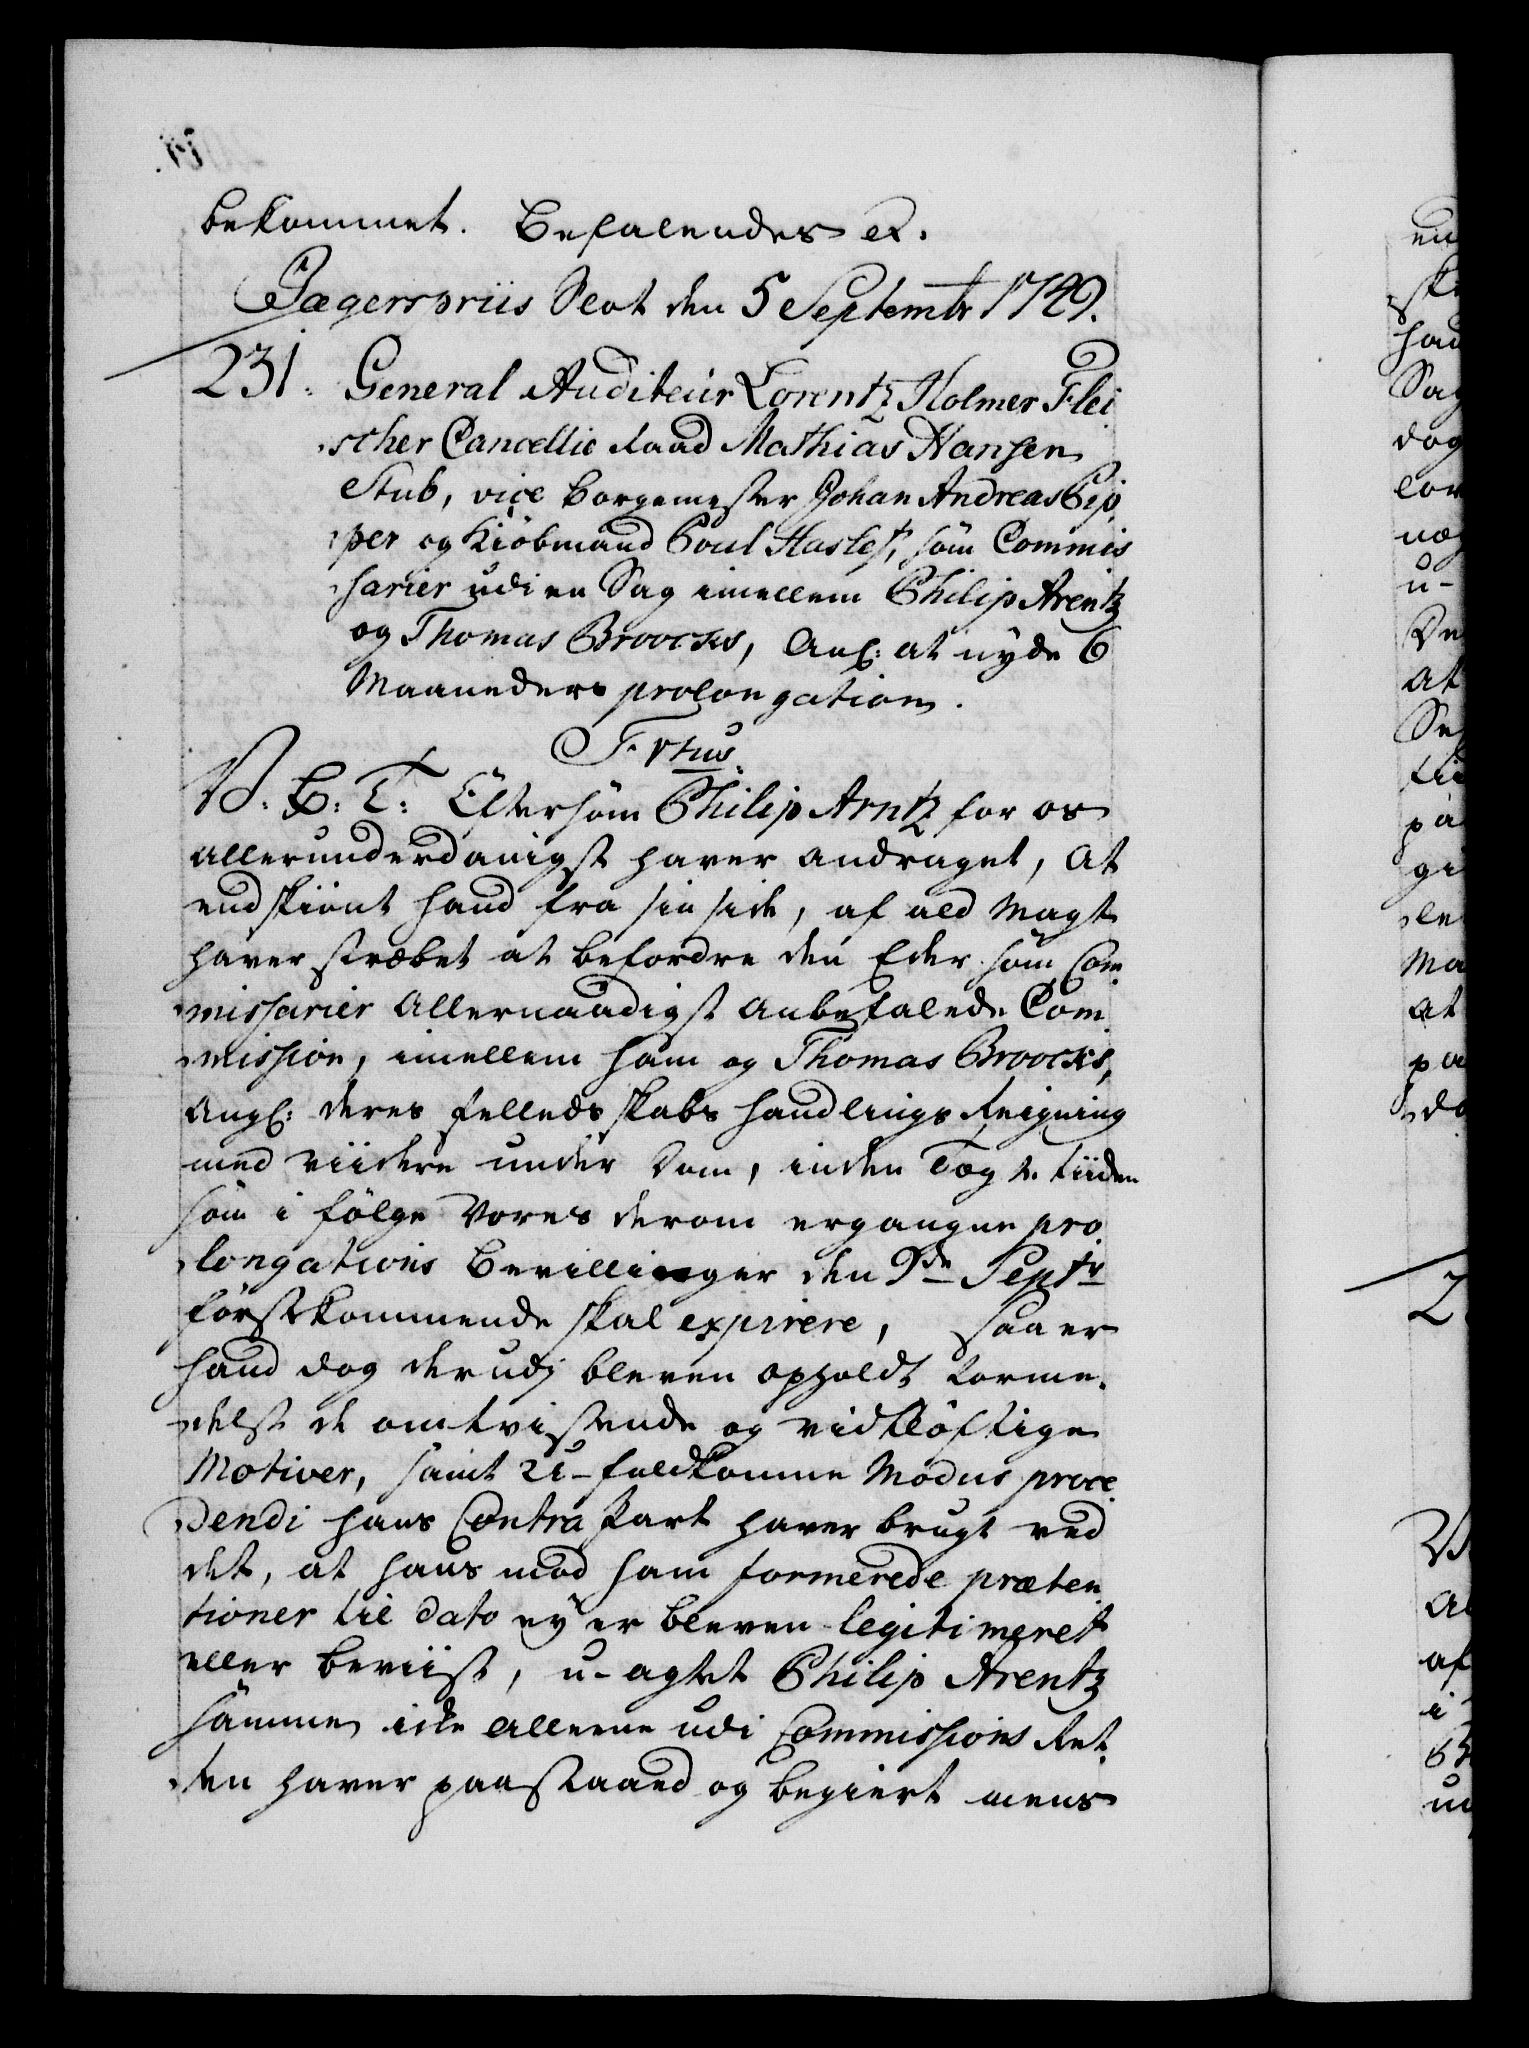 bekommet. Befalendes etc.
Jægerspriis Slot den 5 Septembr 1749.
231. General Auditeur Lorentz Holmer Flei
scher Cancellie Raad Mathias Hansen
Stub, vice Borgemester Johan Andreas Pip
per og Kiöbmand Poul Haslef, som Commis
sarier udi en Sag imellem Philip Arentz
og Thomas Broocks, Anl: at nyde 6
Maaneders prolongation.
F. Vtus.
V. G. T: Eftersom Philip Arntz for os
allerunderdanigst haver andraget, At
endskiönt hand fra sin side, af ald Magt
haver stræbet at befordre den Eder som Com
missarier Allernaadigst anbefalede Com
mission, imellem ham og Thomas Broocks,
angl: deres Felledsskabs Handlings Reigning
med viidere under Dom, inden Dag & Tiiden
som i følge Vores derom ergangne pro
longations Bevillinger den 9de Septr
förstkommende skal expirere, saa er
hand dog derudj bleven opholdt forme
delst de omtvistende og vidtlöftige
Motiver, samt u-fuldkomne Modus proce
dendi hans Contra Part haver brugt ved
det, at hans mod ham formerede præten
tioner til dato ey er bleven legitimeret
eller beviist, u-agtet Philip Arentz
samme icke allene udi Commissions Ret
ten haver paastaaed og begiert mens